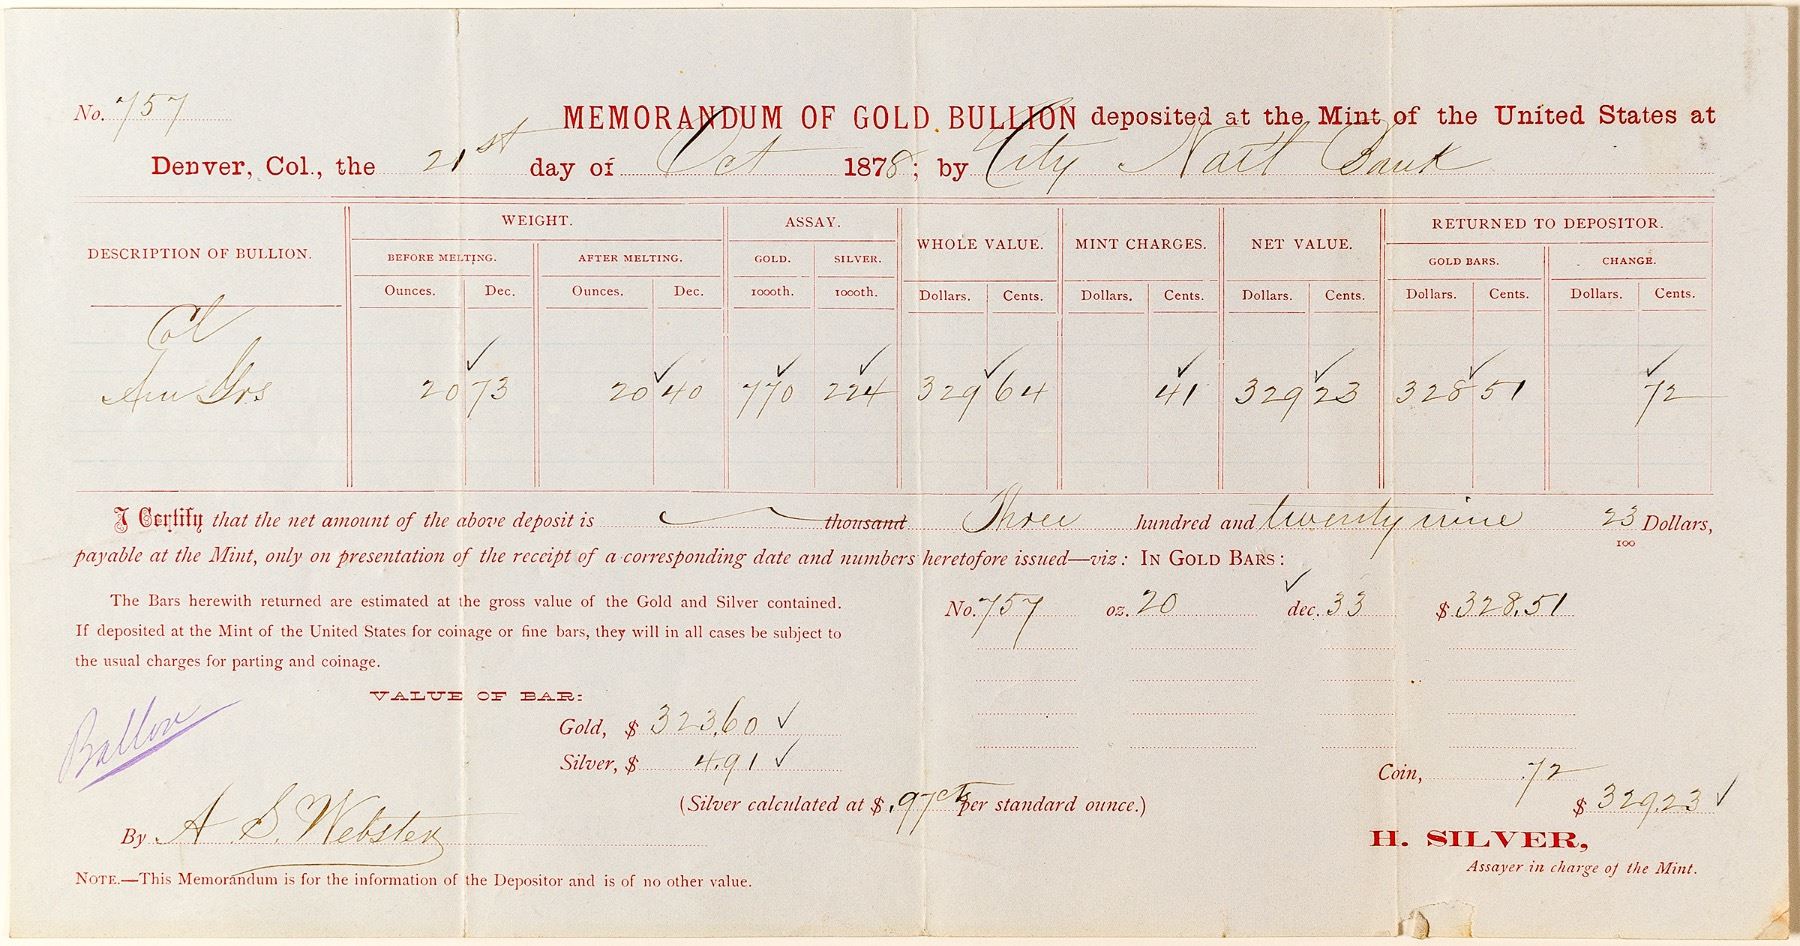 No. 757
MEMORANDUM OF GOLD BULLION deposited at the Mint of the United States at
Denver, Col., the 21st day of Oct 1878; by City Natl Bank
DESCRIPTION OF BULLION. WEIGHT. ASSAY. WHOLE VALUE. MINT CHARGES. NET VALUE. RETURNED TO DEPOSITOR.
BEFORE MELTING. AFTER MELTING. GOLD. SILVER. GOLD BARS. CHANGE.
Ounces. Dec. Ounces. Dec. 1000th. 1000th. Dollars. Cents. Dollars. Cents. Dollars. Cents. Dollars. Cents. Dollars. Cents.
Col
20 73 20 40 770 224 329 64 41 329 23 328 51 72
I Certify that the net amount of the above deposit is thousand Three hundred and twenty nine 23/100 Dollars,
payable at the Mint, only on presentation of the receipt of a corresponding date and numbers heretofore issued—viz: IN GOLD BARS:
The Bars herewith returned are estimated at the gross value of the Gold and Silver contained.
If deposited at the Mint of the United States for coinage or fine bars, they will in all cases be subject to
the usual charges for parting and coinage.
No. 757 oz. 20 dec. 33 $ 328.51
VALUE OF BAR:
Gold, $ 323.60
Silver, $ 4.91
(Silver calculated at $ .97cts per standard ounce.)
Coin, .72
$ 329.23
By A. S. Webster
H. SILVER,
Assayer in charge of the Mint.
NOTE.—This Memorandum is for the information of the Depositor and is of no other value.